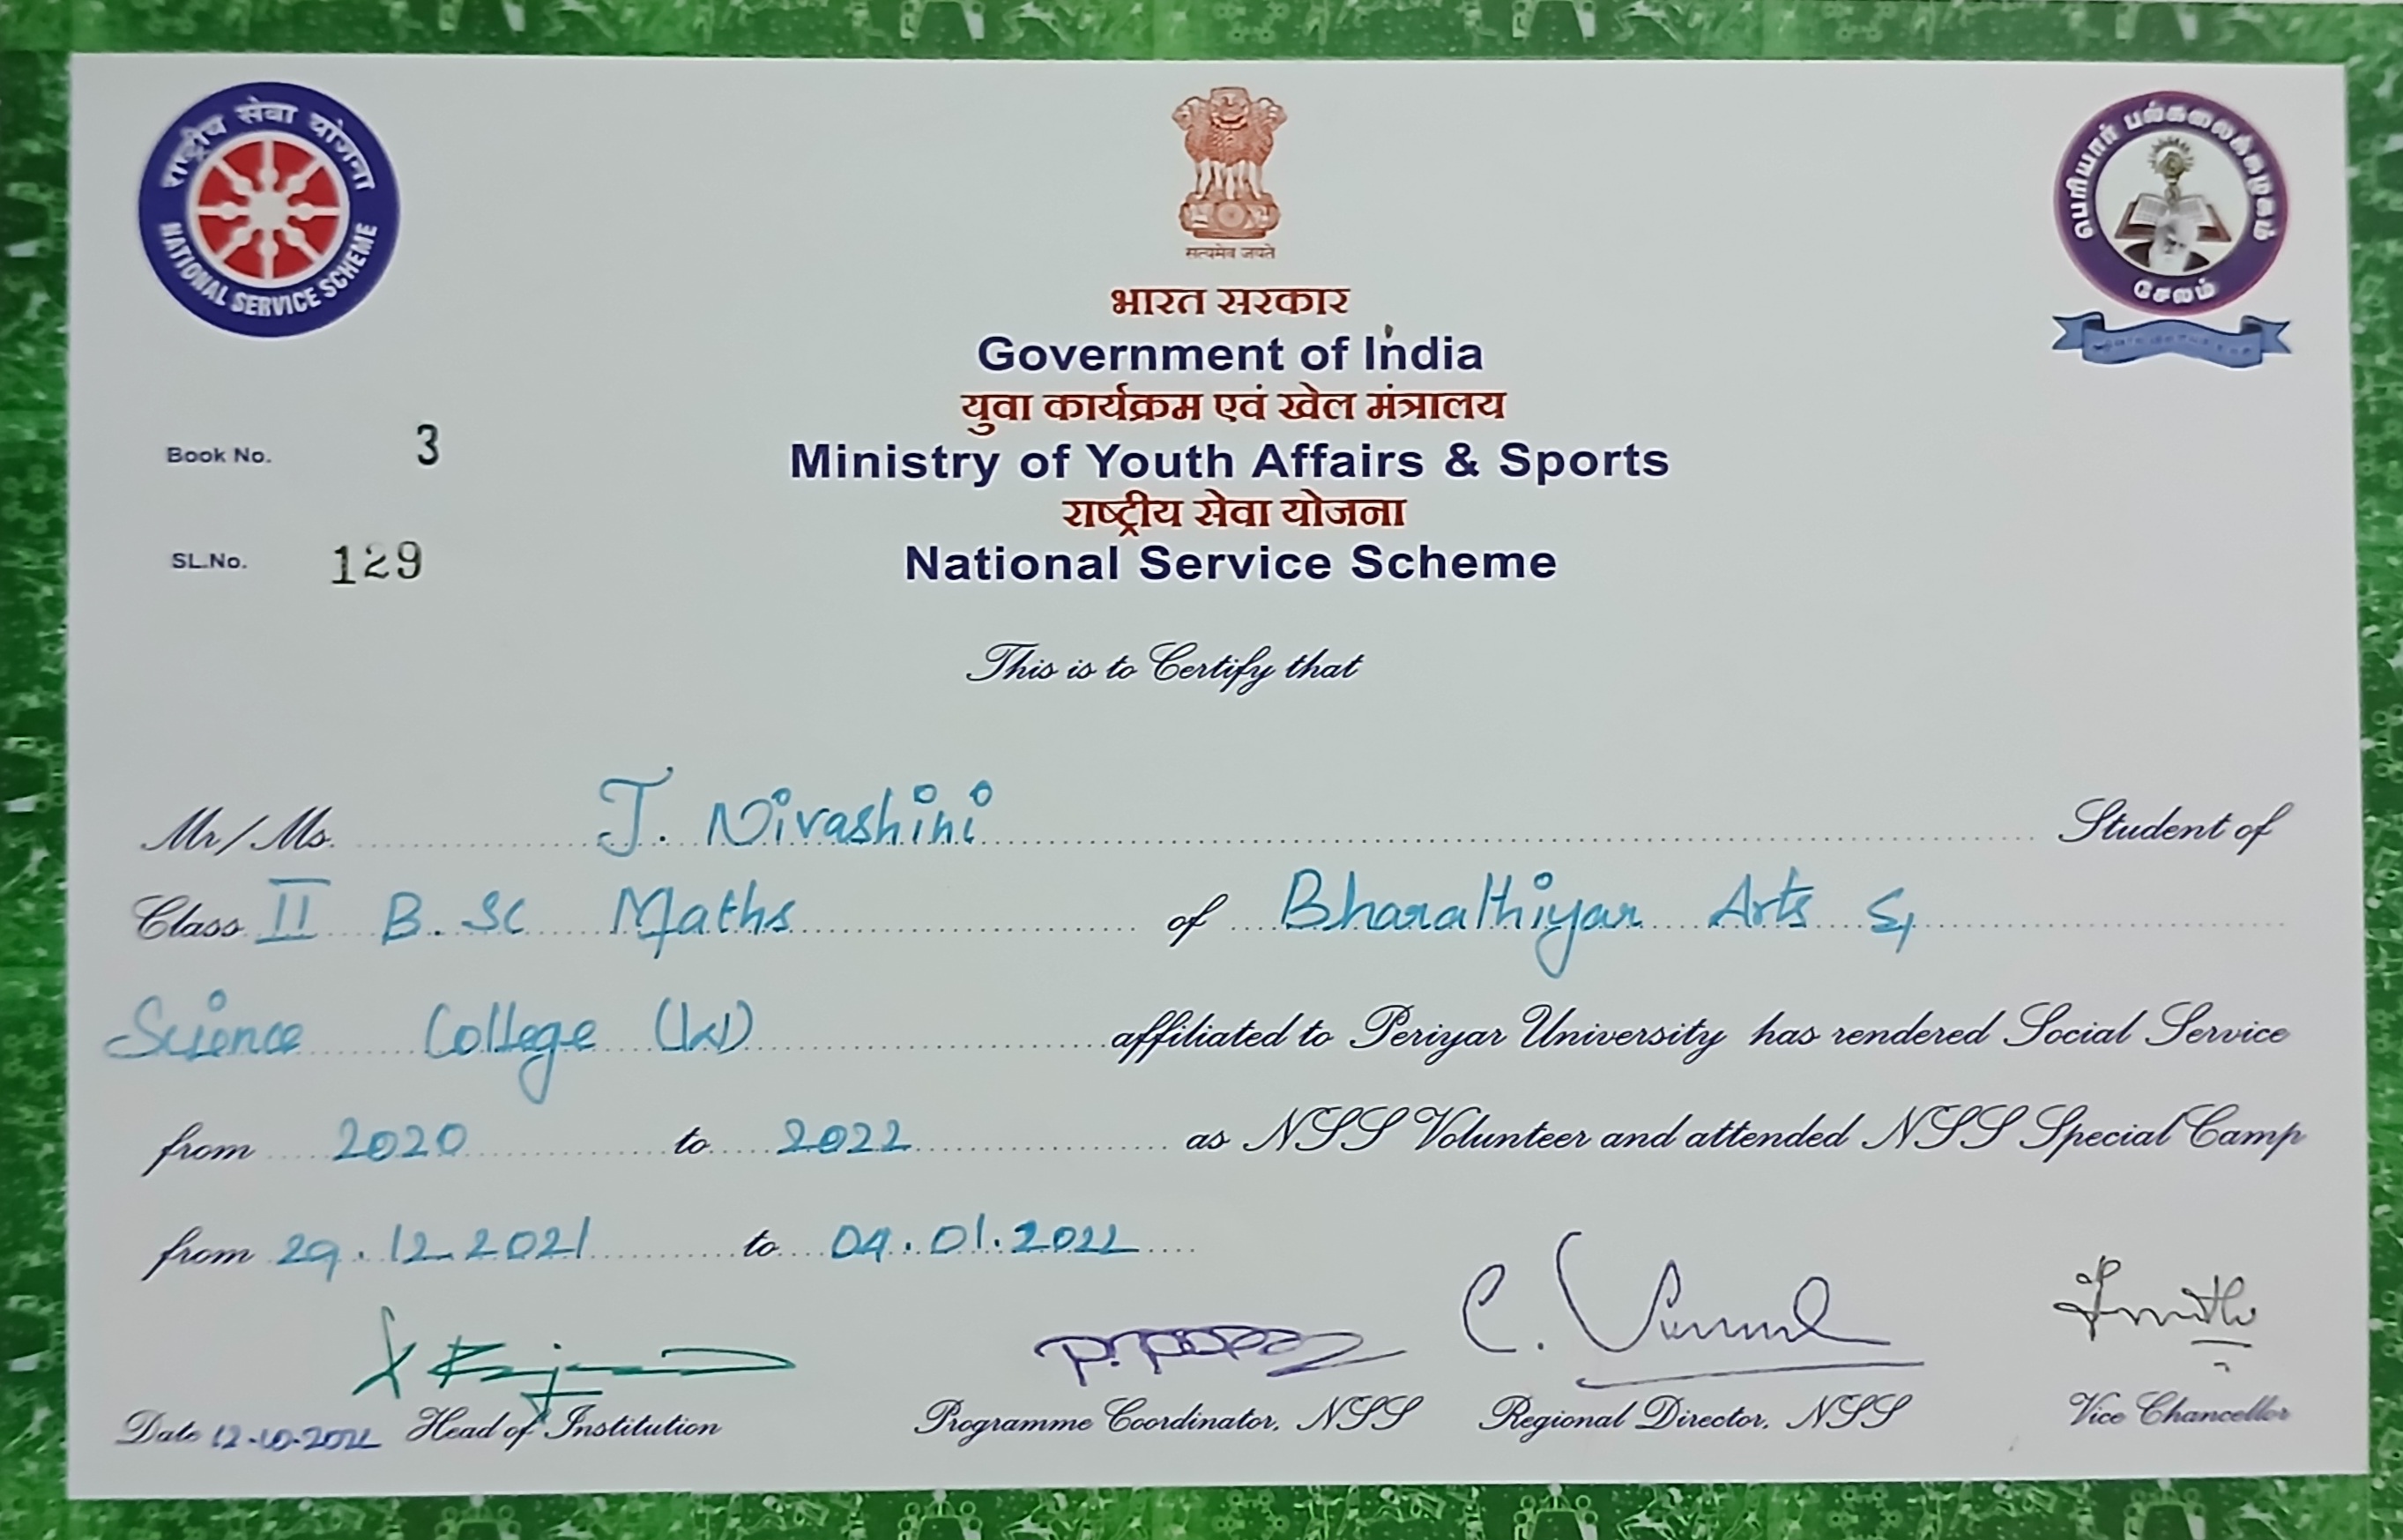 राष्ट्रीय सेवा योजना
NATIONAL SERVICE SCHEME
सत्यमेव जयते
பெரியார் பல்கலைக்கழகம்
சேலம்
भारत सरकार
Government of India
युवा कार्यक्रम एवं खेल मंत्रालय
Ministry of Youth Affairs & Sports
राष्ट्रीय सेवा योजना
National Service Scheme
Book No. 3
SL.No. 129
This is to Certify that
Mr/Ms. J. Nivashini Student of
Class II B.Sc Maths of Bharathiyar Arts &
Science College (W) affiliated to Periyar University has rendered Social Service
from 2020 to 2022 as NSS Volunteer and attended NSS Special Camp
from 29.12.2021 to 04.01.2022
Date 12-10-2022 Head of Institution Programme Coordinator, NSS Regional Director, NSS Vice Chancellor